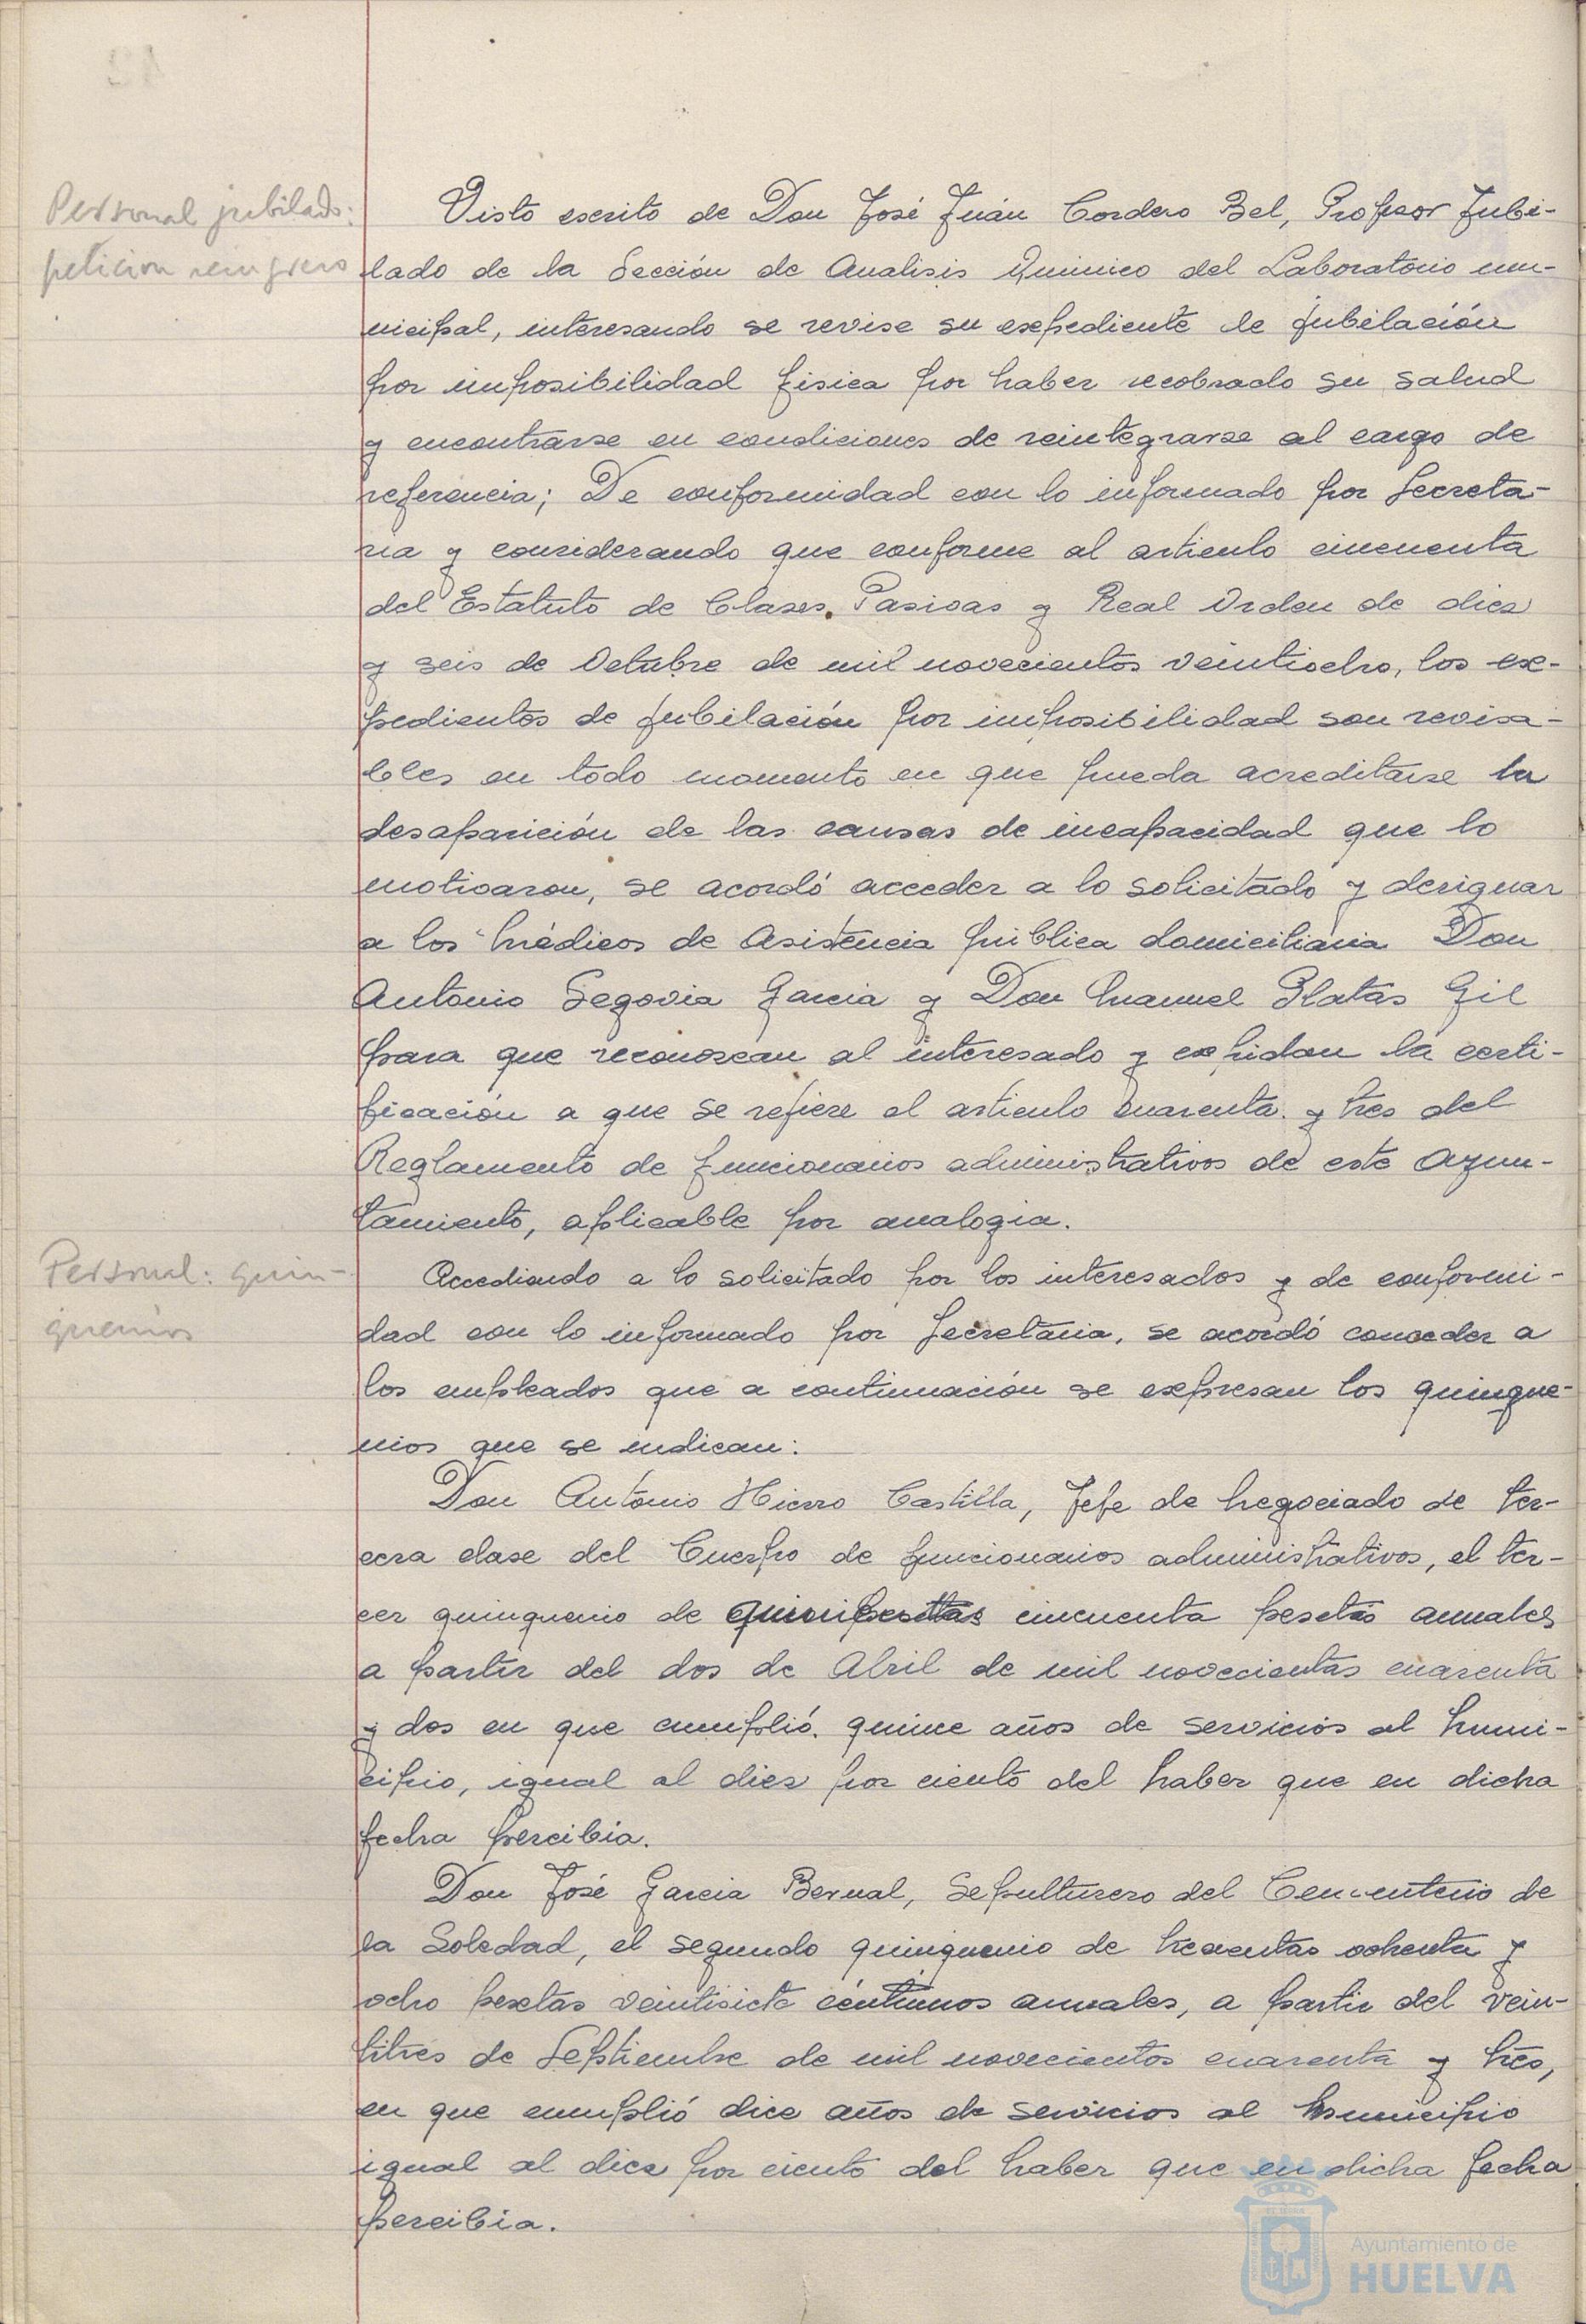 Personal jubilado:
petición reingreso
Visto escrito de Don José Juán Cordero Bel, Profesor Jubi-
lado de la Sección de Analisis Quimico del Laboratorio mu-
nicipal, interesando se revise su expediente de jubilación
por imposibilidad fisica por haber recobrado su salud
y encontrarse en condiciones de reintegrarse al cargo de
referencia; De conformidad con lo informado por Secreta-
ria y considerando que conforme al articulo cincuenta
del Estatuto de Clases Pasivas y Real Orden de diez
y seis de Octubre de mil novecientos veintiocho, los ex-
pedientes de jubilación por imposibilidad son revisa-
bles en todo momento en que pueda acreditarse la
desaparición de las causas de incapacidad que lo
motivaron, se acordó acceder a lo solicitado y designar
a los Médicos de Asistencia pública domiciliaria Don
Antonio Segovia Garcia y Don Manuel Platas Gil
para que reconozcan al interesado y expidan la certi-
ficación a que se refiere el articulo cuarenta y tres del
Reglamento de funcionarios administrativos de este Ayun-
tamiento, aplicable por analogia.
Personal: quin-
quenios
Accediendo a lo solicitado por los interesados y de conformi-
dad con lo informado por Secretaria, se acordó conceder a
los empleados que a continuación se expresan los quinque-
nios que se indican:
Don Antonio Hierro Castilla, Jefe de Negociado de ter-
cera clase del Cuerpo de funcionarios administrativos, el ter-
cer quinquenio de cincuenta pesetas anuales
a partir del dos de Abril de mil novecientos cuarenta
y dos en que cumplió quince años de servicios al Muni-
cipio, igual al diez por ciento del haber que en dicha
fecha percibia.
Don José Garcia Bernal, Sepulturero del Cementerio de
la Soledad, el segundo quinquenio de trecientas ochenta y
ocho pesetas veintisiete céntimos anuales, a partir del vein-
titres de Septiembre de mil novecientos cuarenta y tres,
en que cumplió diez años de servicios al Municipio
igual al diez por ciento del haber que en dicha fecha
percibia.
Ayuntamiento de
HUELVA